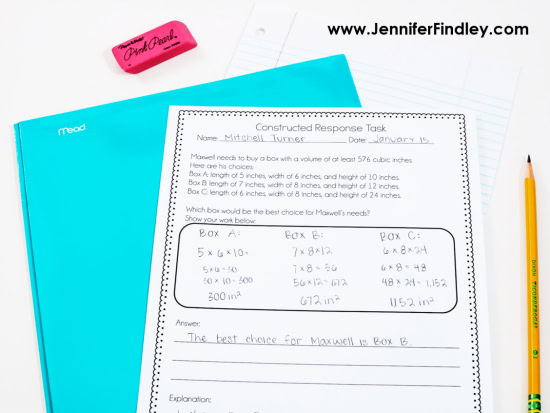 www.JenniferFindley.com
Pink Pearl
mead
Constructed Response Task
Name: Mitchell Turner Date: January 15
Maxwell needs to buy a box with a volume of at least 576 cubic inches.
Here are his choices:
Box A: length of 5 inches, width of 6 inches, and height of 10 inches.
Box B: length of 7 inches, width of 8 inches, and height of 12 inches.
Box C: length of 6 inches, width of 8 inches, and height of 24 inches.
Which box would be the best choice for Maxwell's needs?
Show your work below:
Box A: Box B: Box C:
5 x 6 x 10= 7 x 8 x 12 6 x 8 x 24
5 x 6 = 30 7 x 8 = 56 6 x 8 = 48
30 x 10 = 300 56 x 12 = 672 48 x 24 = 1,152
300 in² 672 in² 1152 in²
Answer:
The best choice for Maxwell is Box B.
Explanation: